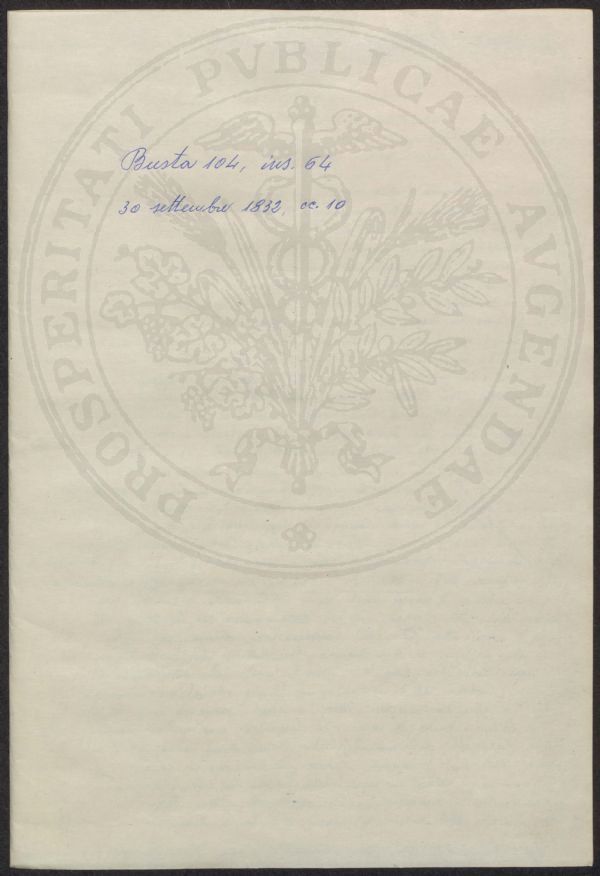 PROSPERITATI PVBLICAE AVGENDAE
Busta 104, ins. 64
30 settembre 1832, cc. 10